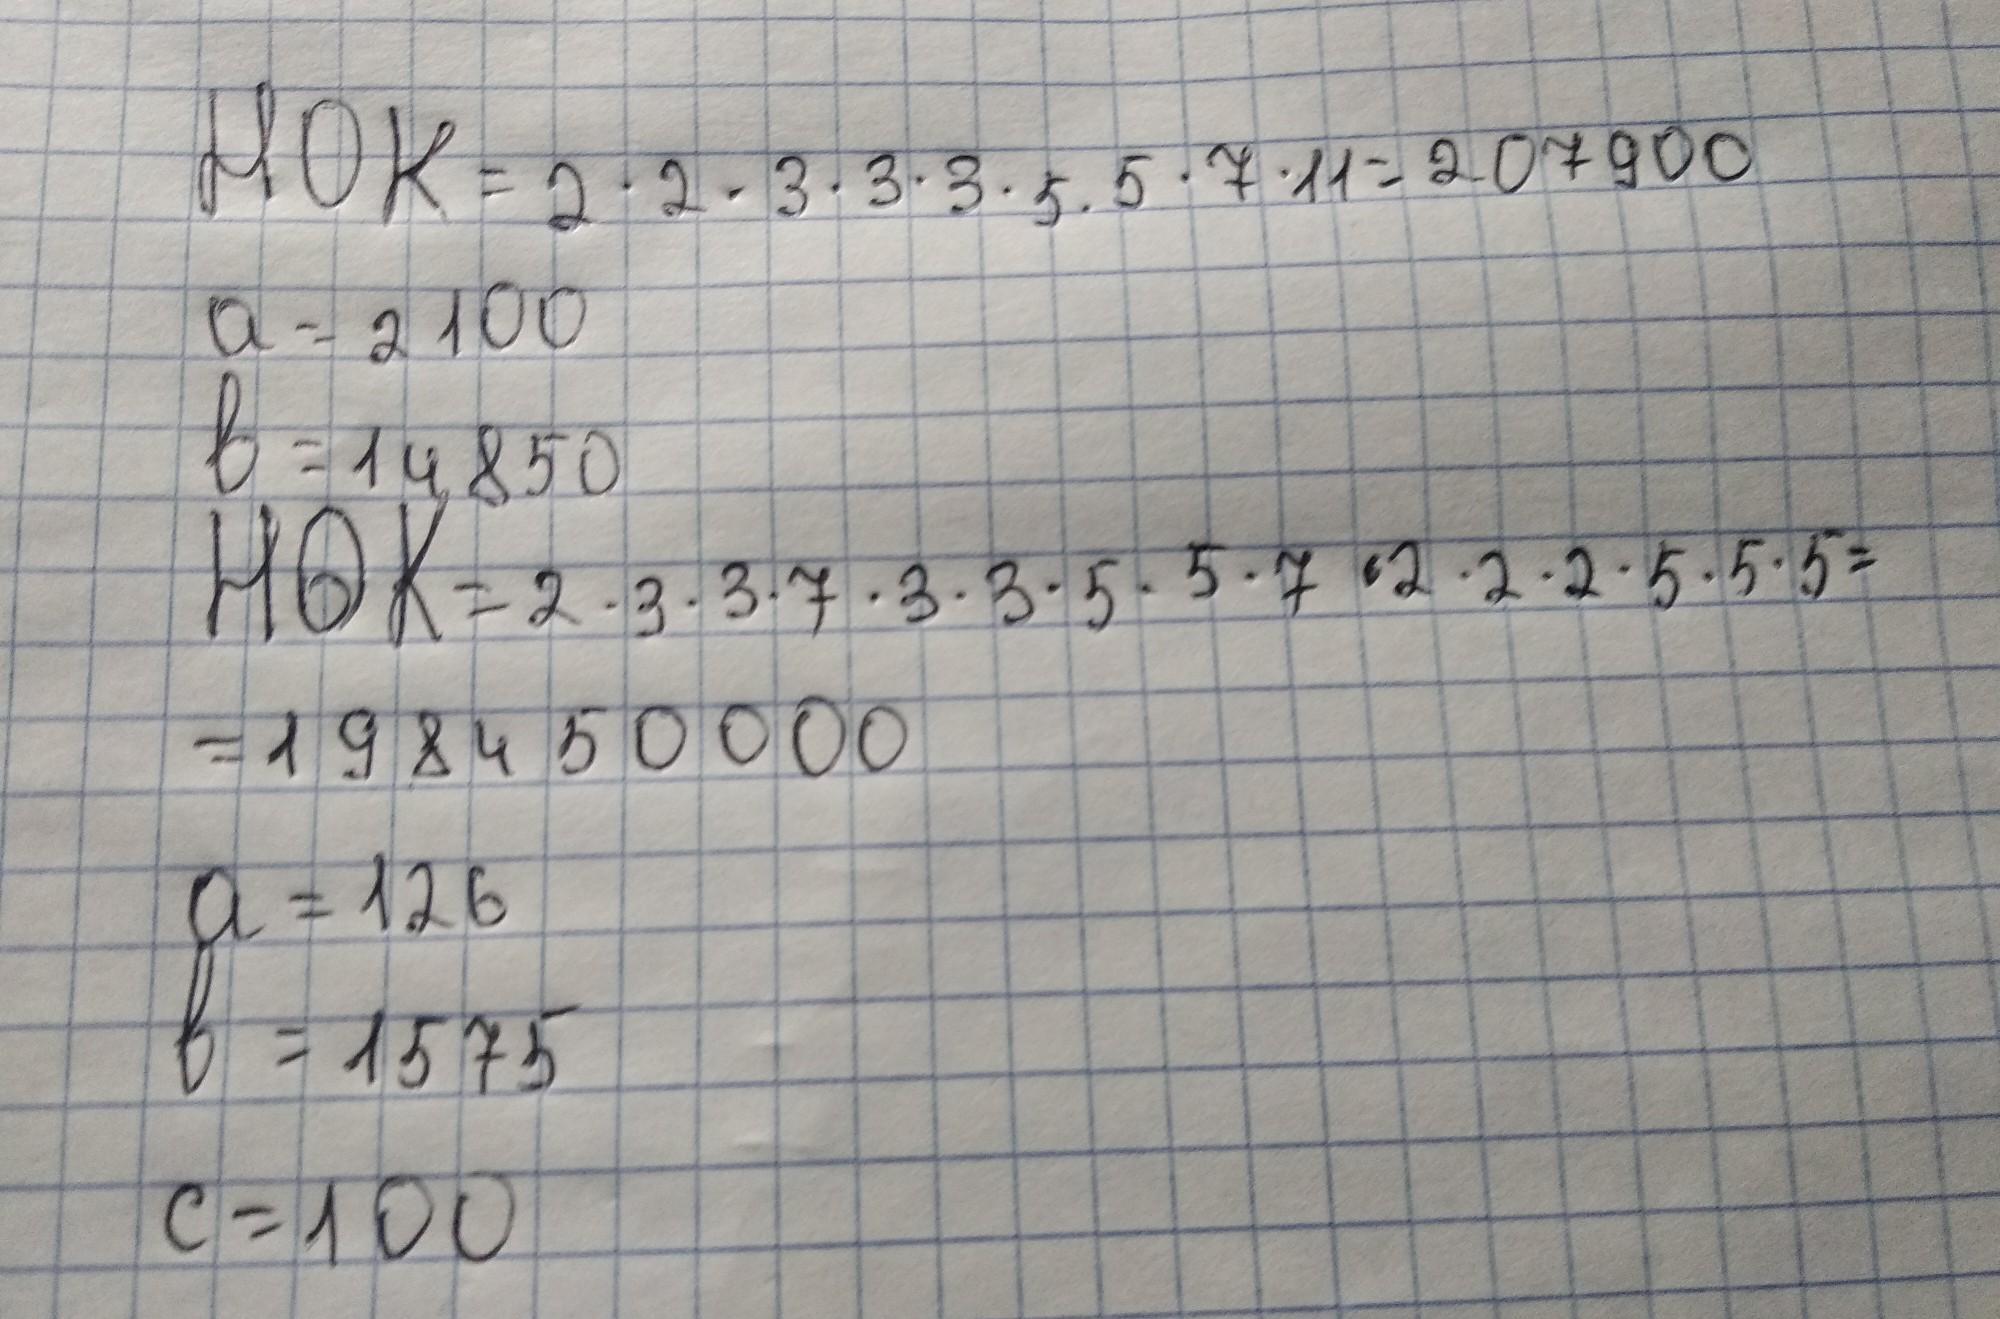 НОК = 2 · 2 · 3 · 3 · 3 · 5 · 5 · 7 · 11 = 207900
a = 2100
b = 14850
НОК = 2 · 3 · 3 · 7 · 3 · 3 · 5 · 5 · 7 · 2 · 2 · 2 · 5 · 5 · 5 =
= 198450000
a = 126
b = 1575
c = 100